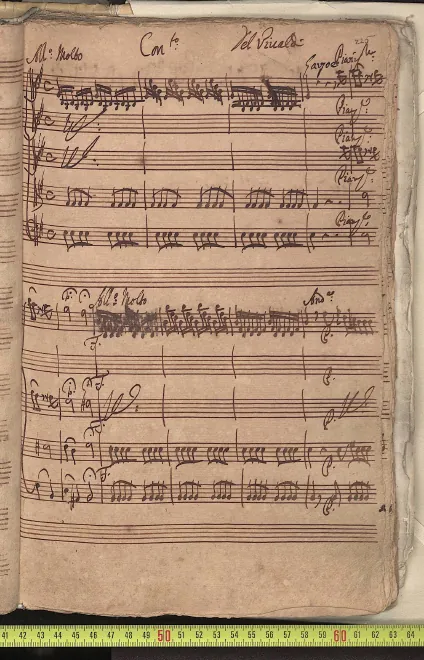 All.º Molto Con.to Del Vivaldi
Pian.º
Pian.º
Pian.º
Pian.º
All.º Molto And.e
F.
P.
P.
P.
P.
41 42 43 44 45 46 47 48 49 50 51 52 53 54 55 56 57 58 59 60 61 62 63 64